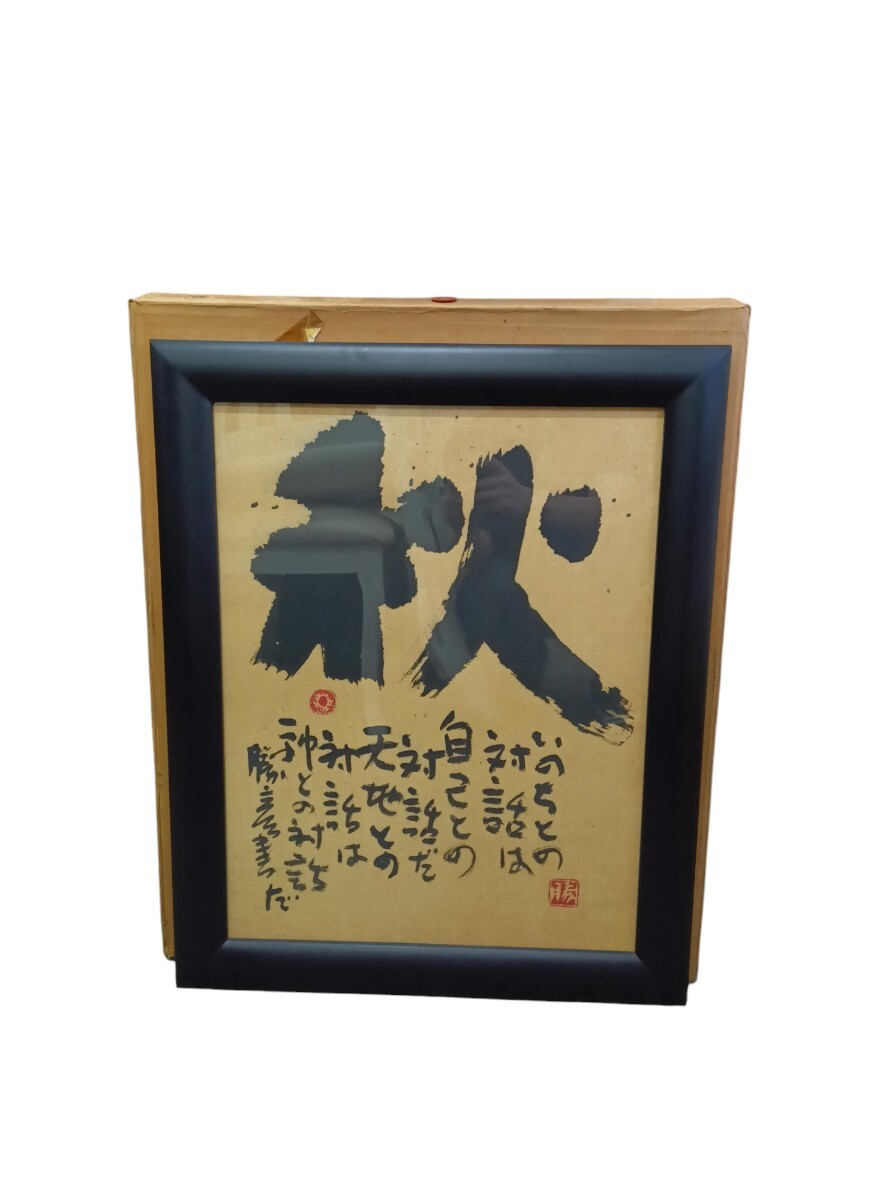 秋
いのちとの
対話は
自己との
対話だ
天地との
対話は
神との対話だ
勝彦書
勝